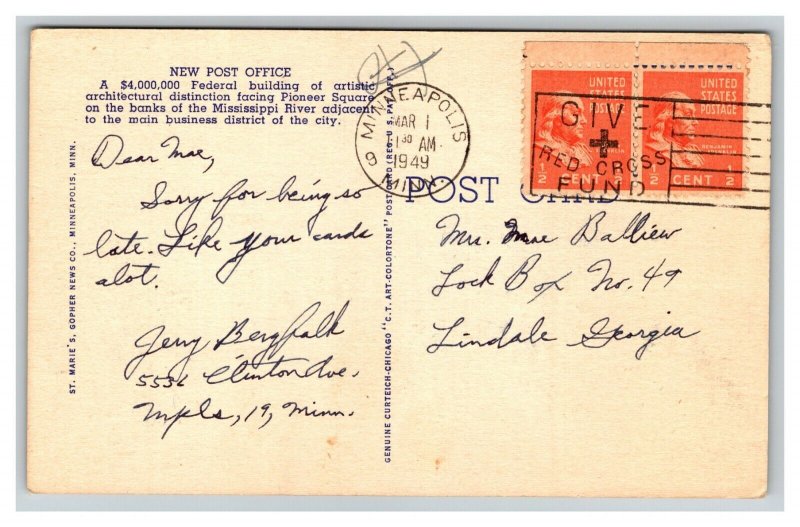 NEW POST OFFICE
A $4,000,000 Federal building of artistic
architectural distinction facing Pioneer Square
on the banks of the Mississippi River adjacent
to the main business district of the city.
Dear Mae,
Sorry for being so
late. Like your cards
alot.
Jerry Bergfalk
5536 Clinton Ave.
Mpls, 19, Minn.
ST. MARIE'S, GOPHER NEWS CO., MINNEAPOLIS, MINN.
GENUINE CURTEICH-CHICAGO "C.T. ART-COLORTONE" POST CARD (REG. U.S. PAT. OFF.)
MINNEAPOLIS
MAR 1
1 30 AM
1949
9 MINN.
UNITED
STATES
POSTAGE
FRANKLIN
1/2 CENT 1/2
UNITED
STATES
POSTAGE
BENJAMIN
FRANKLIN
1/2 CENT 1/2
GIVE
RED CROSS
FUND
POST CARD
Mrs. Mae Balliew
Lock Box No. 49
Lindale Georgia